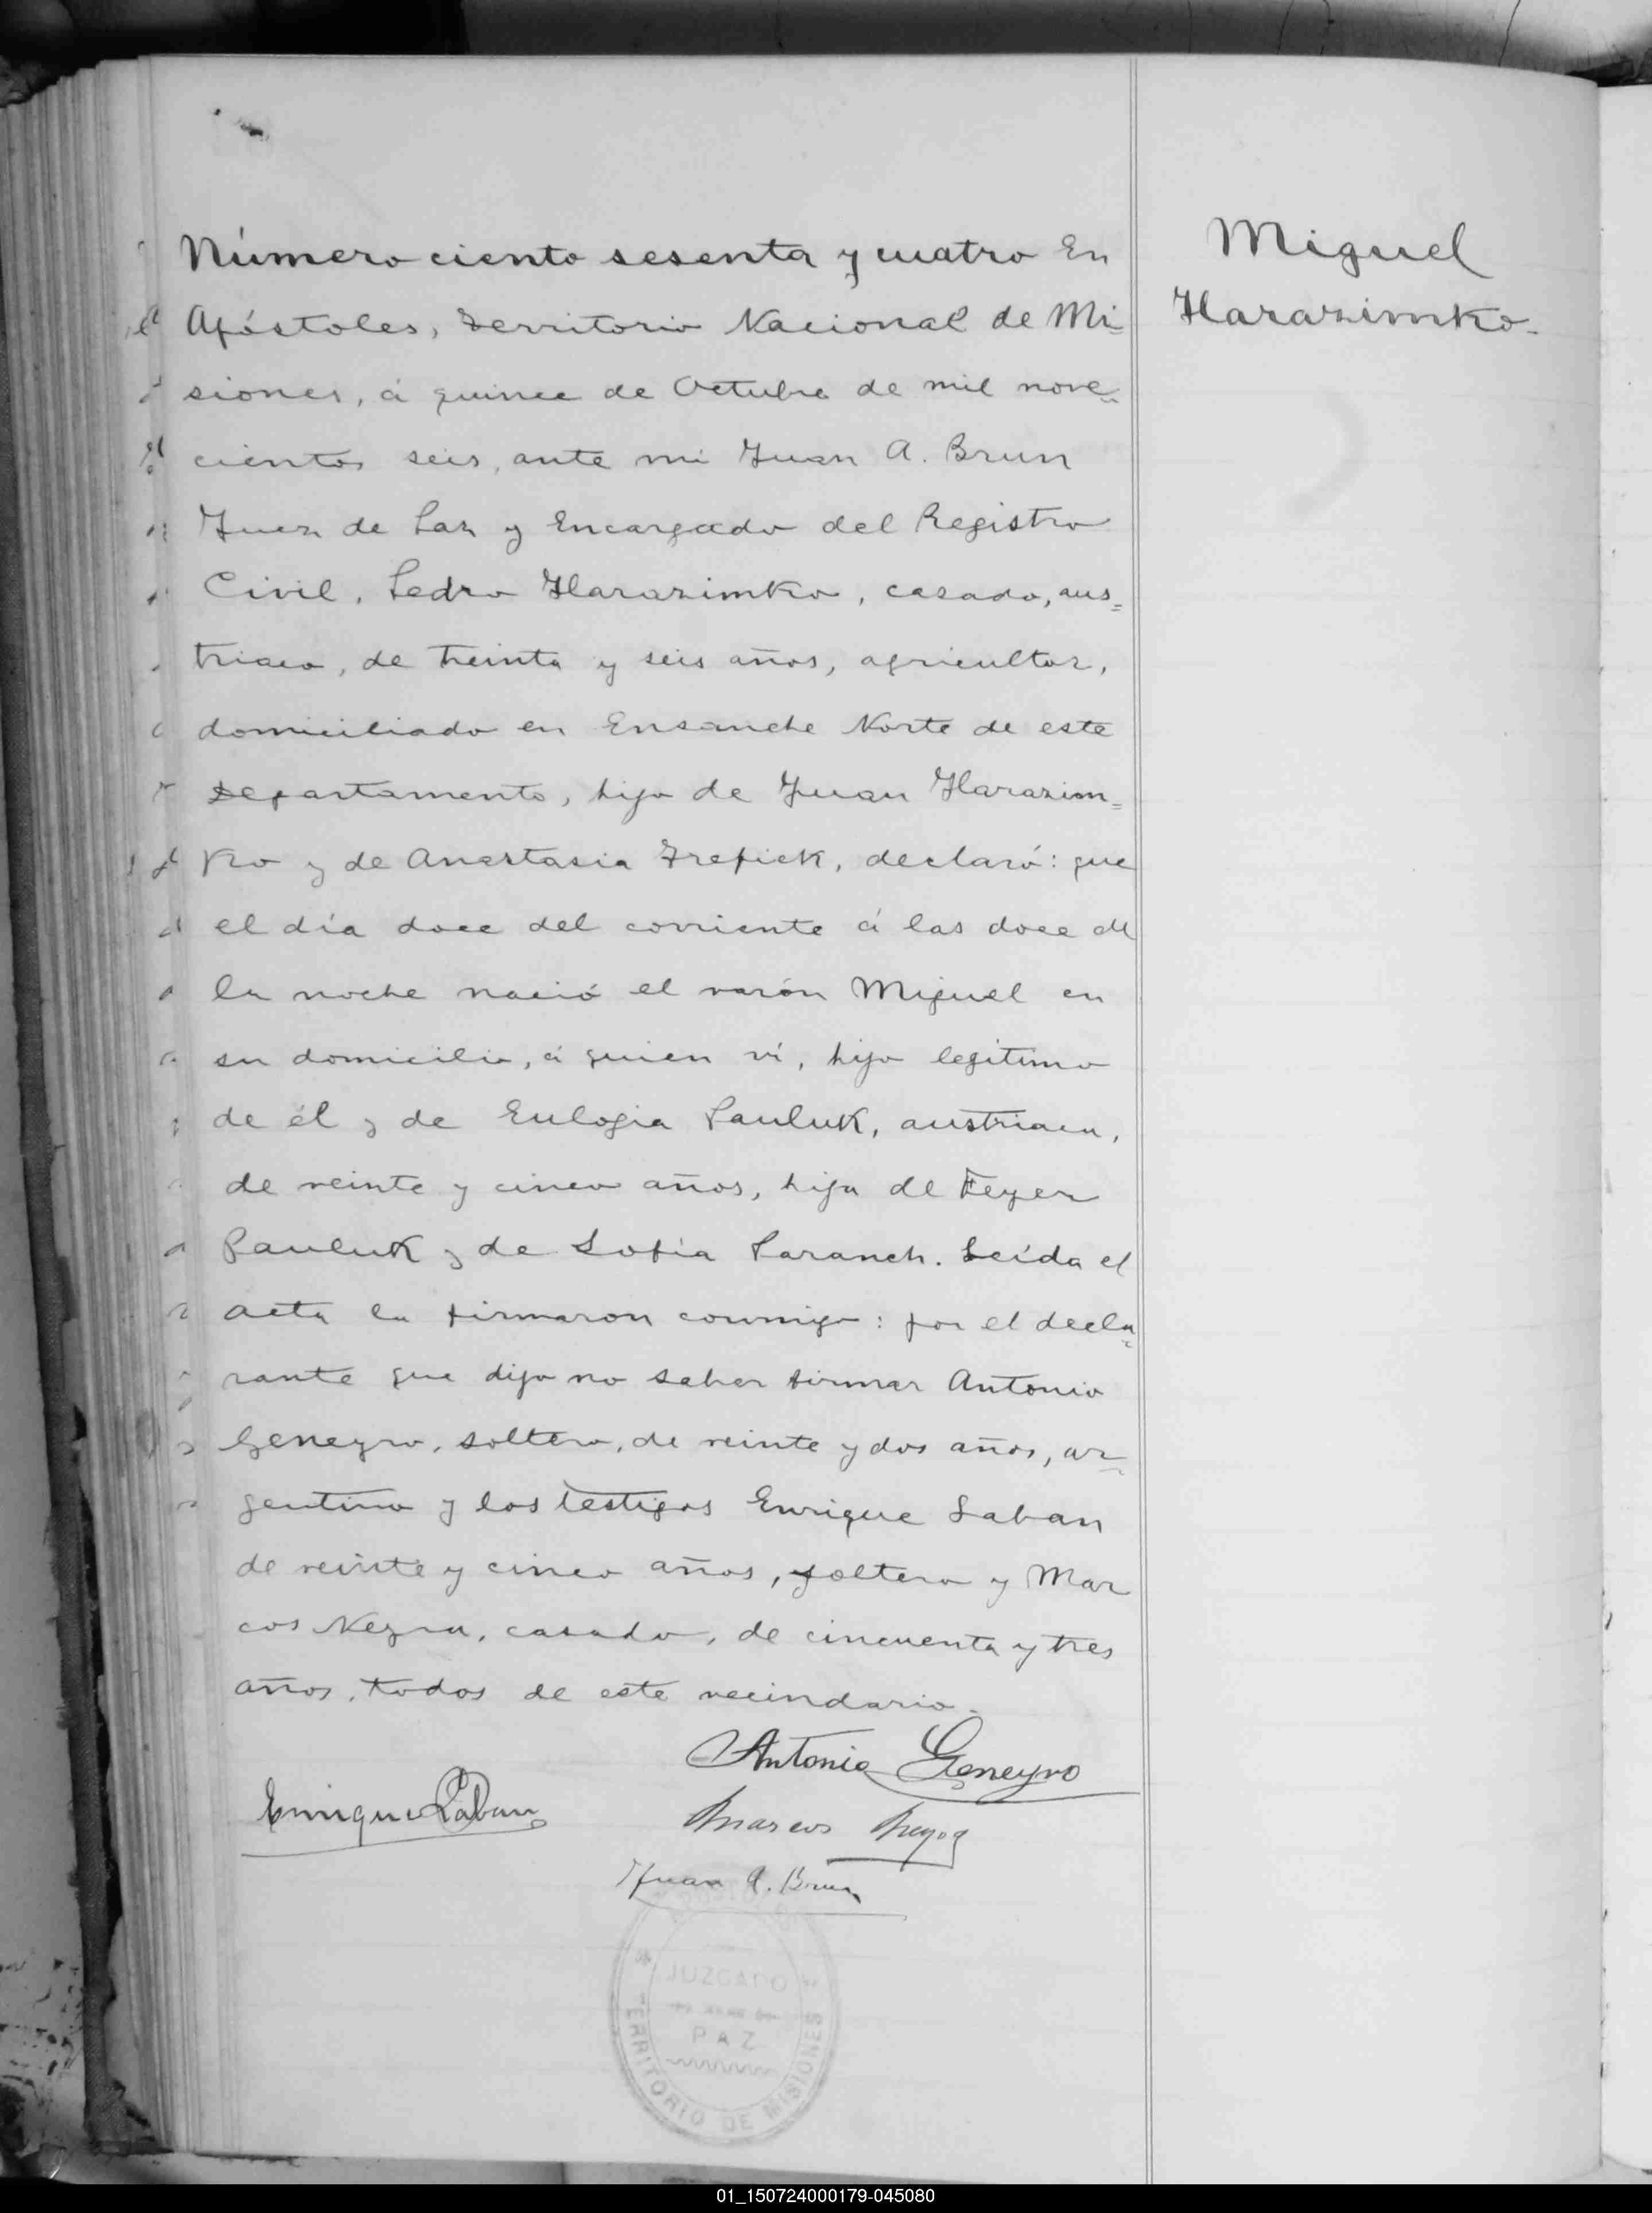 Número ciento sesenta y cuatro En
Apóstoles, Territorio Nacional de Mi-
siones, á quince de Octubre de mil nove-
cientos seis, ante mi Juan A. Brun
Juez de Paz y Encargado del Registro
Civil, Pedro Harazimko, casado, aus=
triaco, de treinta y seis años, agricultor,
domiciliado en Ensanche Norte de este
Departamento, hijo de Juan Harazim=
ko y de Anastasia Trefiek, declaró: que
el día doce del corriente á las doce de
la noche nació el varón Miguel en
su domicilio, á quien ví, hijo legítimo
de él y de Eulogia Pauluk, austriaca,
de veinte y cinco años, hija de Feyer
Pauluk y de Sofía Paranch. Leída el
acta la firmaron conmigo: por el decla-
rante que dijo no saber firmar Antonio
Geneyro, soltero, de veinte y dos años, ar-
gentino y los testigos Enrique Laban
de veinte y cinco años, soltero y Mar
cos casado, de cincuenta y tres
años, todos de este vecindario.
Miguel
Harazimko.
Antonio Geneyro
Enrique Laban
Marcos
Juan A. Brun
JUZGADO
PAZ
TERRITORIO DE MISIONES
01_150724000179-045080